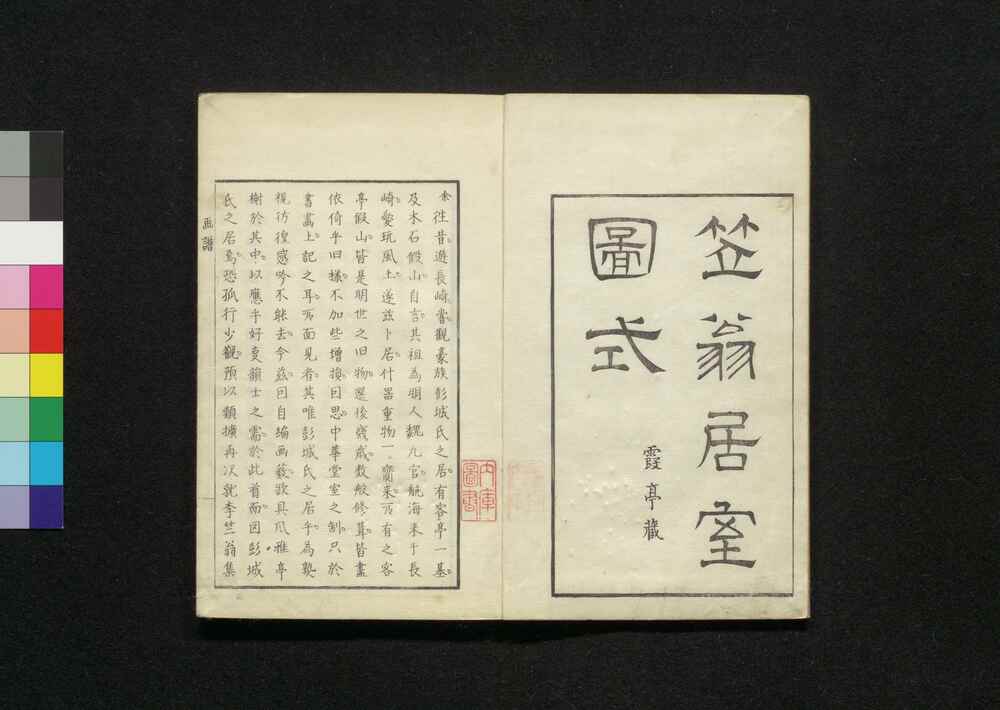 笠翁居室
圖式
霞亭藏
余往昔遊長崎嘗觀豪族彭城氏之居有客亭一基
及木石假山自言其祖為明人魏九官航海来于長
崎愛玩風土遂茲卜居什器重物一實来所有之客
亭假山皆是明世之旧物歴後幾歳数般修葺皆畫
依倚乎旧様不加些增換曰思中華堂室之制只於
書畫上記之耳所面見者其唯彭城氏之居乎為
視彷徨感吟不能去今茲曰自編画薮欲具爪雅亭
榭於其中以應乎好夏韻士之需於此首而因彭城
氏之居焉恐孤行少觀預以類擴再次就李笠翁集
画譜
内庫
圖書